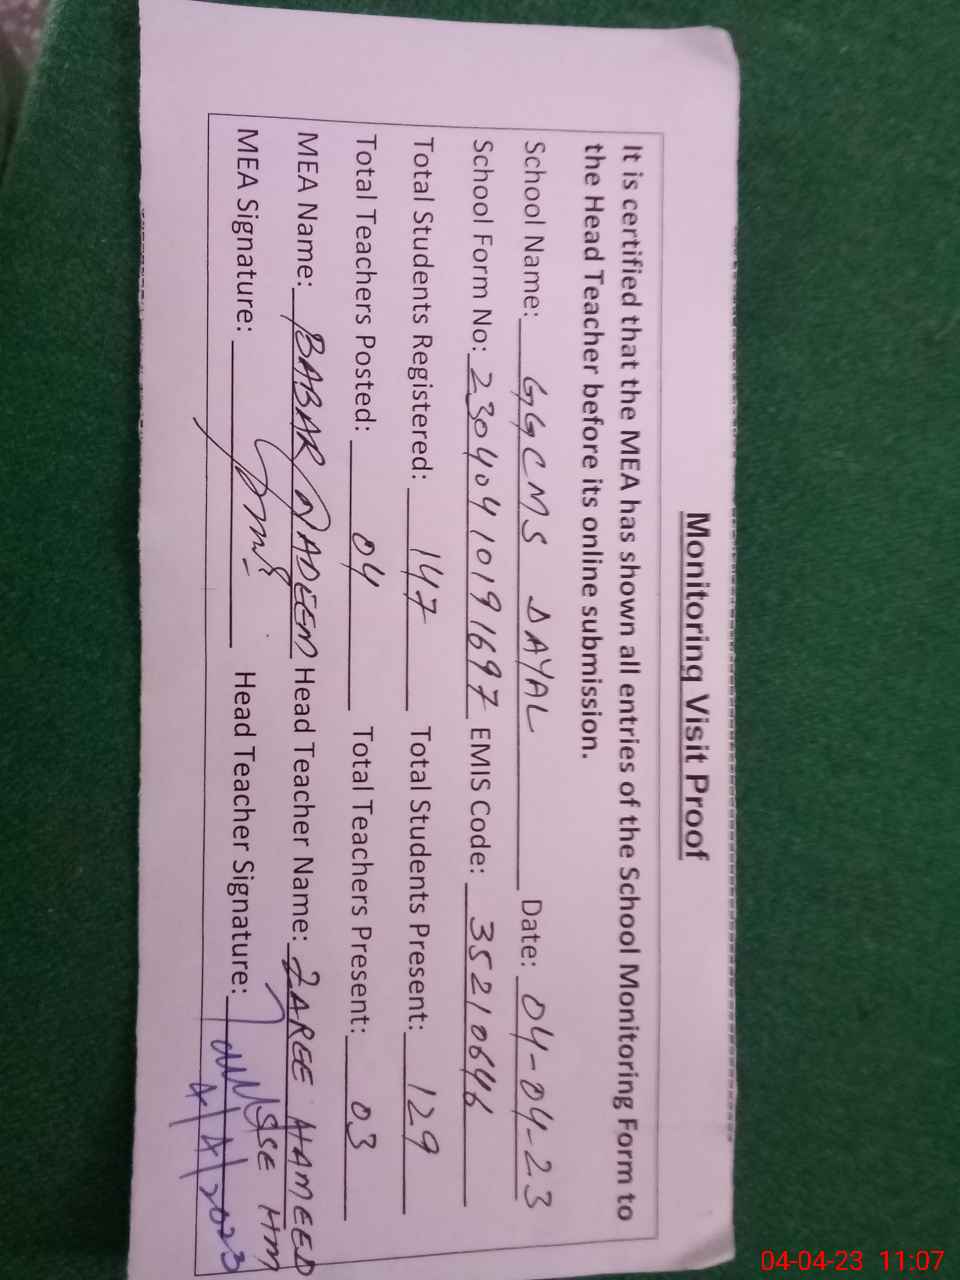 Monitoring Visit Proof
It is certified that the MEA has shown all entries of the School Monitoring Form to
the Head Teacher before its online submission.
School Name: GGCMS DAYAL Date: 04-04-23
School Form No: 23040410191697 EMIS Code: 35210646
Total Students Registered: 147 Total Students Present: 129
Total Teachers Posted: 04 Total Teachers Present: 03
MEA Name: BABAR NADEEM Head Teacher Name: ZAREE HAMEED
MEA Signature: Head Teacher Signature: SSE HM
4/4/2023
04-04-23 11:07